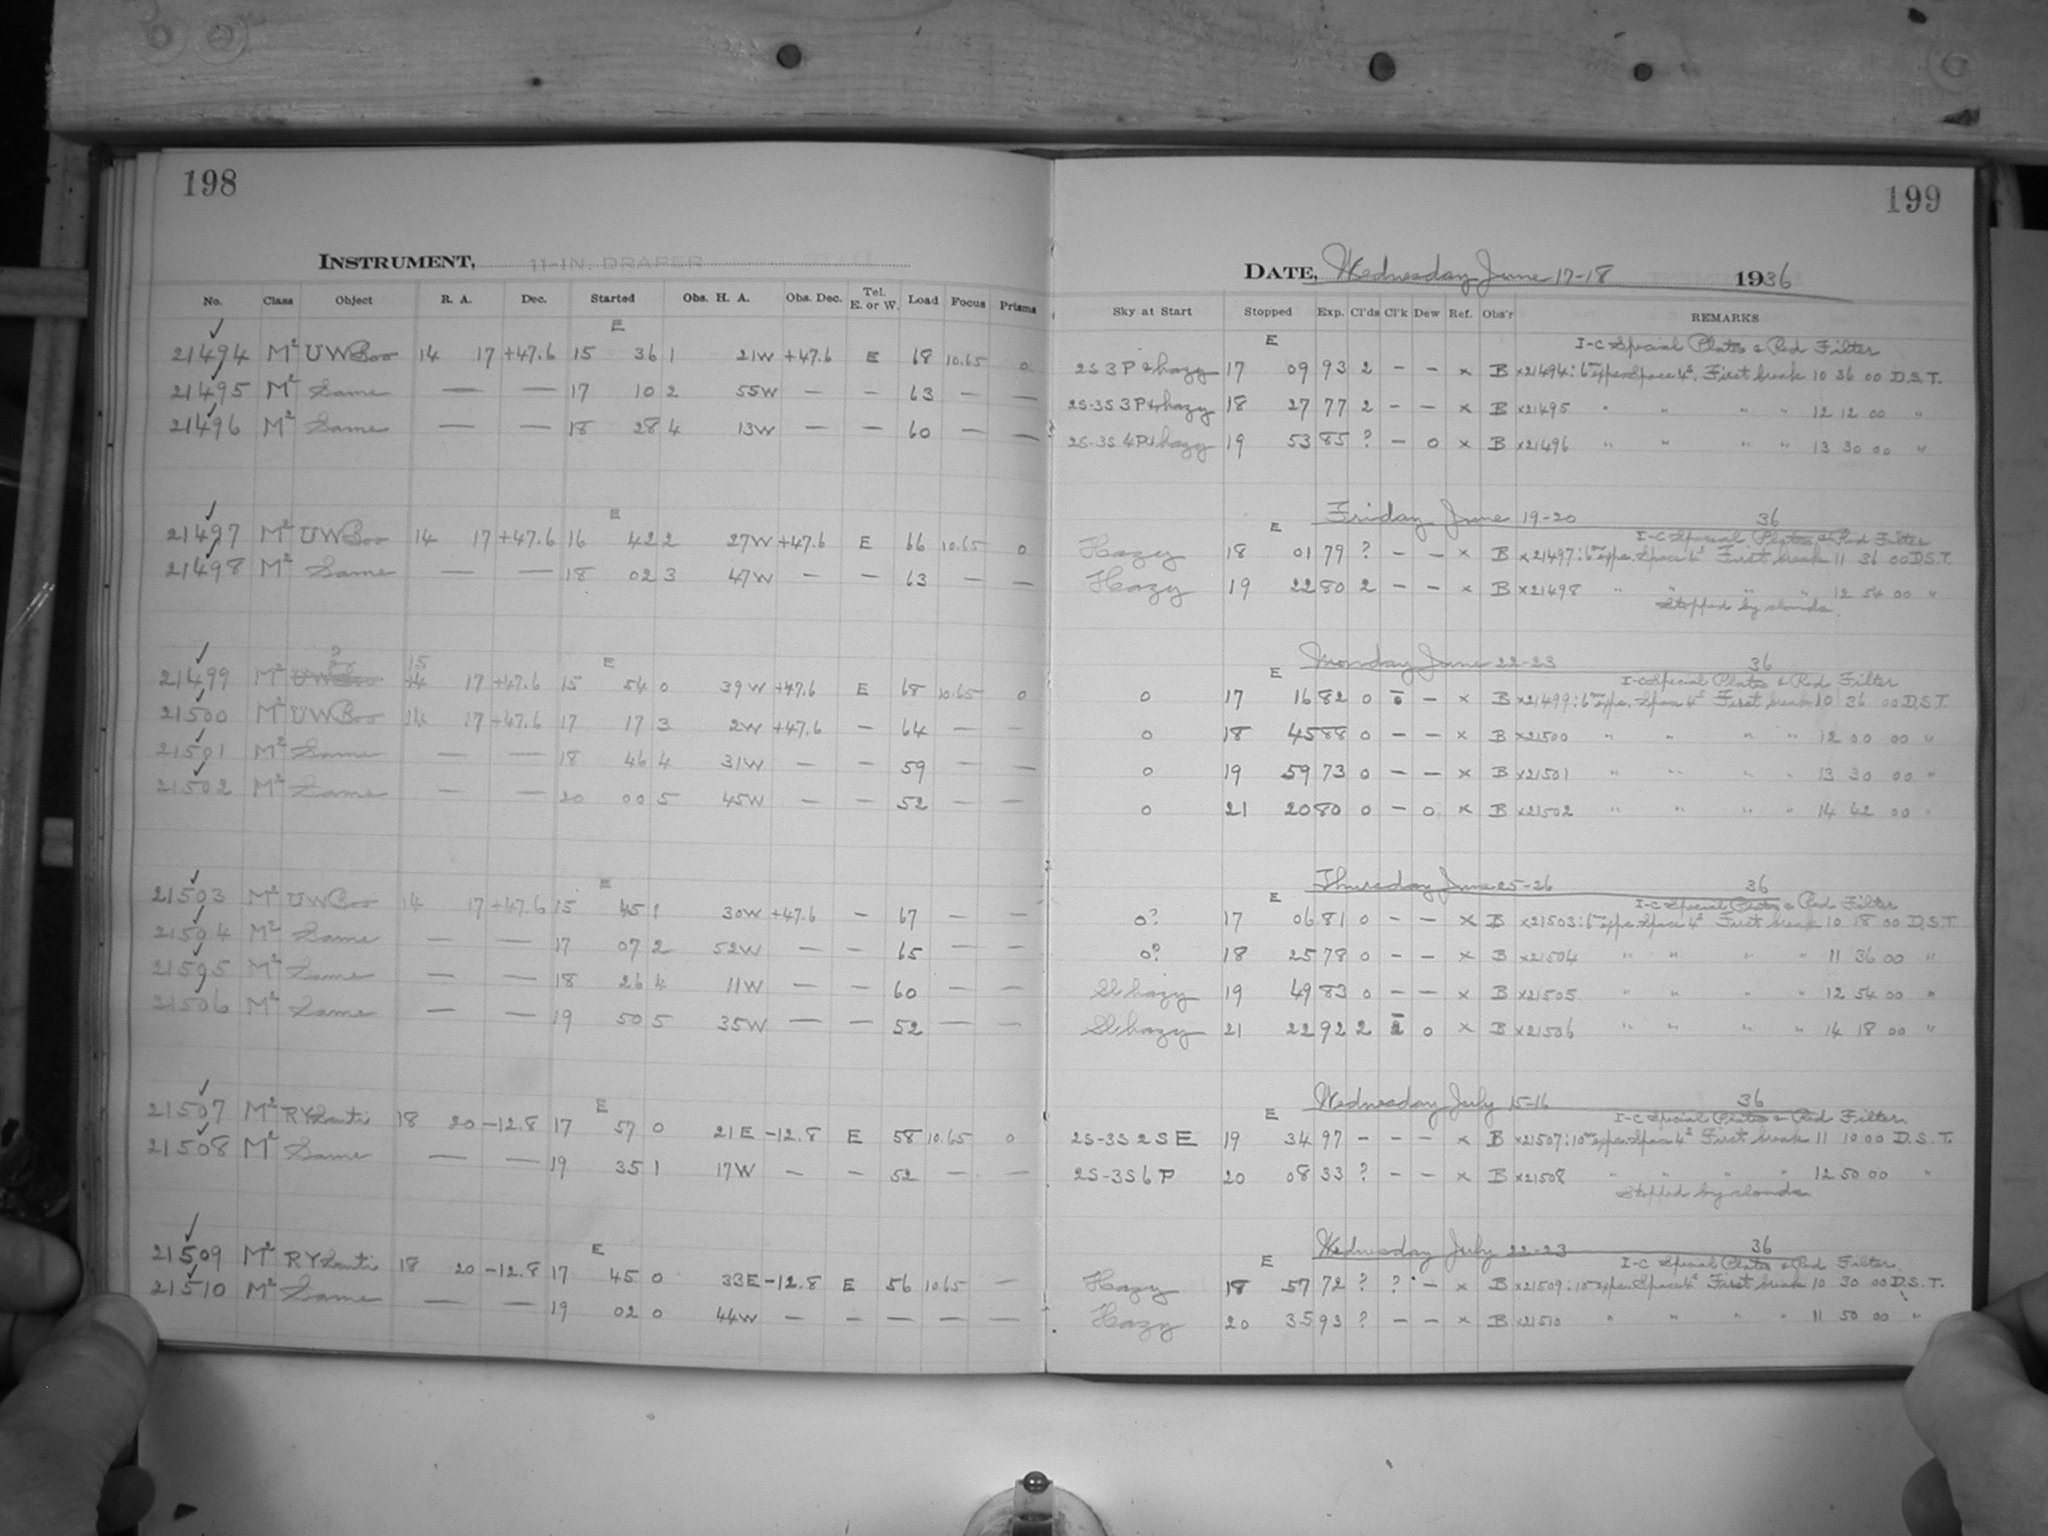 198
INSTRUMENT, 11-IN. DRAPER
No. Class Object R. A. Dec. Started Obs. H. A. Obs. Dec. Tel. E. or W. Load Focus Prisms
E
21494 M² UW Boo 14 17 +47.6 15 36 1 21W +47.6 E 68 10.65 0
21495 M² Same — — 17 10 2 55W — — 63 — —
21496 M² Same — — 18 28 4 13W — — 60 — —
E
21497 M² UW Boo 14 17 +47.6 16 42 2 27W +47.6 E 66 10.65 0
21498 M² Same — — 18 02 3 47W — — 63 — —
? 15 E
21499 M² UW Boo 14 17 +47.6 15 54 0 39W +47.6 E 68 10.65 0
21500 M² UW Boo 14 17 +47.6 17 17 3 2W +47.6 — 64 — —
21501 M² Same — — 18 46 4 31W — — 59 — —
21502 M² Same — — 20 00 5 45W — — 52 — —
E
21503 M² UW Boo 14 17 +47.6 15 45 1 30W +47.6 — 67 — —
21504 M² Same — — 17 07 2 52W — — 65 — —
21505 M² Same — — 18 26 4 11W — — 60 — —
21506 M² Same — — 19 50 5 35W — — 52 — —
E
21507 M² RY Scuti 18 20 -12.8 17 57 0 21E -12.8 E 58 10.65 0
21508 M² Same — — 19 35 1 17W — — 52 — —
E
21509 M² RY Scuti 18 20 -12.8 17 45 0 33E -12.8 E 56 10.65 —
21510 M² Same — — 19 02 0 44W — — — — —
199
DATE, Wednesday June 17-18 1936
Sky at Start Stopped Exp. Cl'ds Cl'k Dew Ref. Obs'r REMARKS
E I-C Special Plate & Red Filter
2S 3P & hazy 17 09 93 2 — — x B x21494: 6m expo. Space 4s. First break 10 36 00 D.S.T.
2S-3S 3P & hazy 18 27 77 2 — — x B x21495 " " " " 12 12 00 "
2S-3S 4P & hazy 19 53 85 ? — 0 x B x21496 " " " " 13 30 00 "
Friday June 19-20 36
E I-C Special Plate & Red Filter
Hazy 18 01 79 ? — — x B x21497: 6m expo. Space 4s First break 11 36 00 D.S.T.
Hazy 19 22 80 2 — — x B x21498 " " " " 12 54 00 "
Stopped by clouds.
Monday June 22-23 36
E I-C Special Plate & Red Filter
0 17 16 82 0 — — x B x21499: 6m expo. Space 4s First break 10 36 00 D.S.T.
0 18 45 88 0 — — x B x21500 " " " " 12 00 00 "
0 19 59 73 0 — — x B x21501 " " " " 13 30 00 "
0 21 20 80 0 — 0 x B x21502 " " " " 14 42 00 "
Thursday June 25-26 36
E I-C Special Plate & Red Filter
0? 17 06 81 0 — — x B x21503: 6m expo. Space 4s First break 10 18 00 D.S.T.
0? 18 25 78 0 — — x B x21504 " " " " 11 36 00 "
Sl hazy 19 49 83 0 — — x B x21505 " " " " 12 54 00 "
Sl hazy 21 22 92 2 — 0 x B x21506 " " " " 14 18 00 "
Wednesday July 15-16 36
E I-C Special Plate & Red Filter.
2S-3S 2S E 19 34 97 — — — x B x21507: 10m expo. Space 4s First break 11 10 00 D.S.T.
2S-3S 6P 20 08 33 ? — — x B x21508 " " " " 12 50 00 "
Stopped by clouds
Wednesday July 22-23 36
E I-C Special Plate & Red Filter.
Hazy 18 57 72 ? ? — x B x21509: 10m expo. Space 4s First break 10 30 00 D.S.T.
Hazy 20 35 93 ? — — x B x21510 " " " " 11 50 00 "